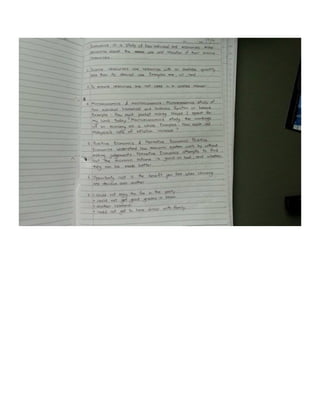 Economics is a study of how individual and economies make
decisions about the use and allocation of their scarce
resources.
2. Scarce resources are resources with an available quantity
less than its desired use. Examples are oil, land.
3. To ensure resources are not used in a careless manner.
4. Microeconomics & macroeconomics. Microeconomics study of
how individual household and business function or behave
Example : How much pocket money should I spend for
my lunch today? Macroeconomics study the workings
of an economy as a whole. Example : How much did
Malaysia's rate of inflation increase?
5. Positive Economics & Normative Economics. Positive
Economics understand how economic system work by without
making judgements. Normative Economics attempts to find
out the economic outcome is good or bad and whether
they can be made better.
6. Opportunity cost is the benefit you lose when choosing
one decision over another
could not enjoy the fun in the party.
could not get good grades in exam.
another weekend.
could not get to have dinner with family.